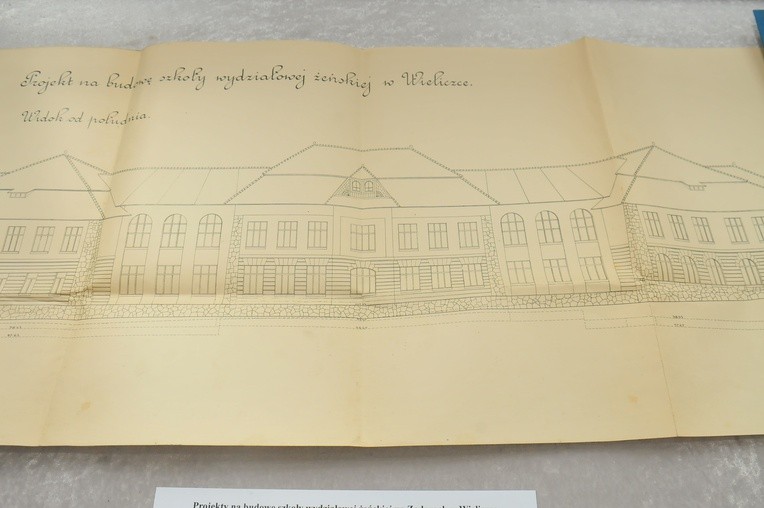 Projekt na budowę szkoły wydziałowej żeńskiej w Wieliczce.
Widok od południa.
Projekty na budowę szkoły wydziałowej żeńskiej